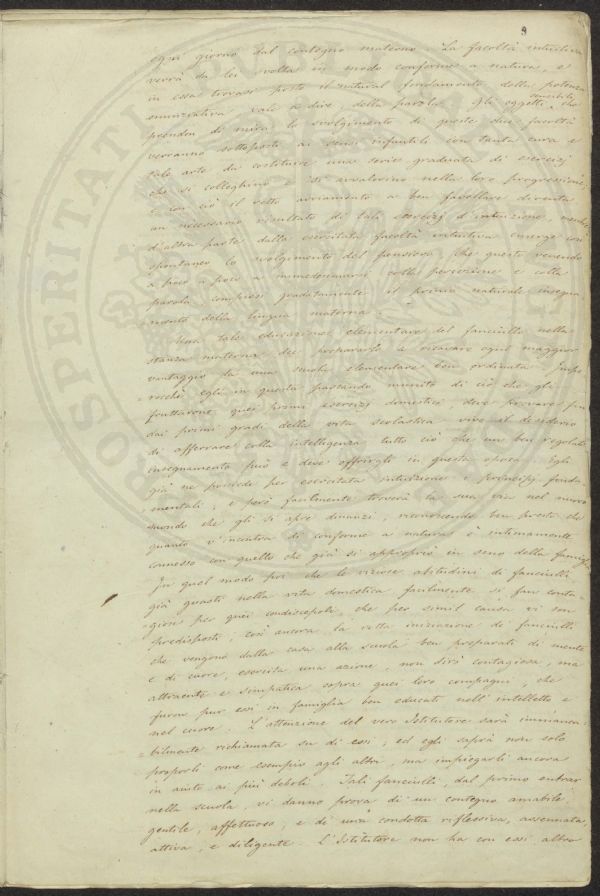 9
ogni giorno dal contegno materno. La facoltà intuitiva
verrà da lei svolta in modo conforme a natura, e
in essa trovasi posto il natural fondamento della potenza
enunziativa, vale a dire, della parola. Gli oggetti sensibili, che
prendon di mira lo svolgimento di queste due facoltà
verranno sottoposti ai sensi infantili con tanta cura e
tale arte da costituire una serie graduata di esercizj
che si colleghino e si avvalorino nella loro progressione,
e con ciò il retto avviamento a ben favellare diventa
un necessario risultato di tali esercizj d'intuizione, mentre
d'altra parte dalla esercitata facoltà intuitiva emerge con
spontaneo lo svolgimento del pensiero, che questo venendo
a poco a poco a immedesimarsi colla percezione e colla
parola, compiesi gradatamente il primo naturale insegna
mento della lingua materna.
Una tale educazione elementare del fanciullo nella
stanza materna dee prepararlo a ricavare ogni maggior
vantaggio da una scuola elementare ben ordinata. Impe
rocchè egli in questa passando munito di ciò che gli
fruttarono quei primi esercizj domestici, deve provare fin
dai primi gradi della vita scolastica vivo il desiderio
di afferrare colla intelligenza tutto ciò che un ben regolato
insegnamento può e deve offrirgli in questa epoca. Egli
già ne possiede per esercitata intuizione i principj fonda
mentali; e però facilmente troverà la sua via nel nuovo
mondo che gli si apre dinanzi, riconoscendo ben presto che
quanto v'incontra di conforme a natura è intimamente
connesso con quello che già si appropriò in seno della famiglia.
In quel modo poi che le viziose abitudini di fanciulli
già guasti nella vita domestica facilmente si fan conta-
giose per quei condiscepoli, che per simil causa vi son
predisposti; così ancora la retta iniziazione de' fanciulli
che vengono dalla casa alla scuola ben preparati di mente
e di cuore, esercita una azione, non dirò contagiosa, ma
attraente e simpatica sopra quei loro compagni, che
furon pur essi in famiglia ben educati nell'intelletto e
nel cuore. L'attenzione del vero Istitutore sarà immanca-
bilmente richiamata su di essi, ed egli saprà non solo
proporli come esempio agli altri, ma impiegarli ancora
in aiuto ai più deboli. Tali fanciulli, dal primo entrar
nella scuola, vi danno prova di un contegno amabile
gentile, affettuoso, e di una condotta riflessiva, assennata,
attiva, e diligente. L'Istitutore non ha con essi altro
PROSPERITATI PUBLICAE